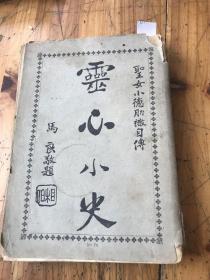 聖女小德肋撒自傳
靈心小史
馬良敬題
相伯